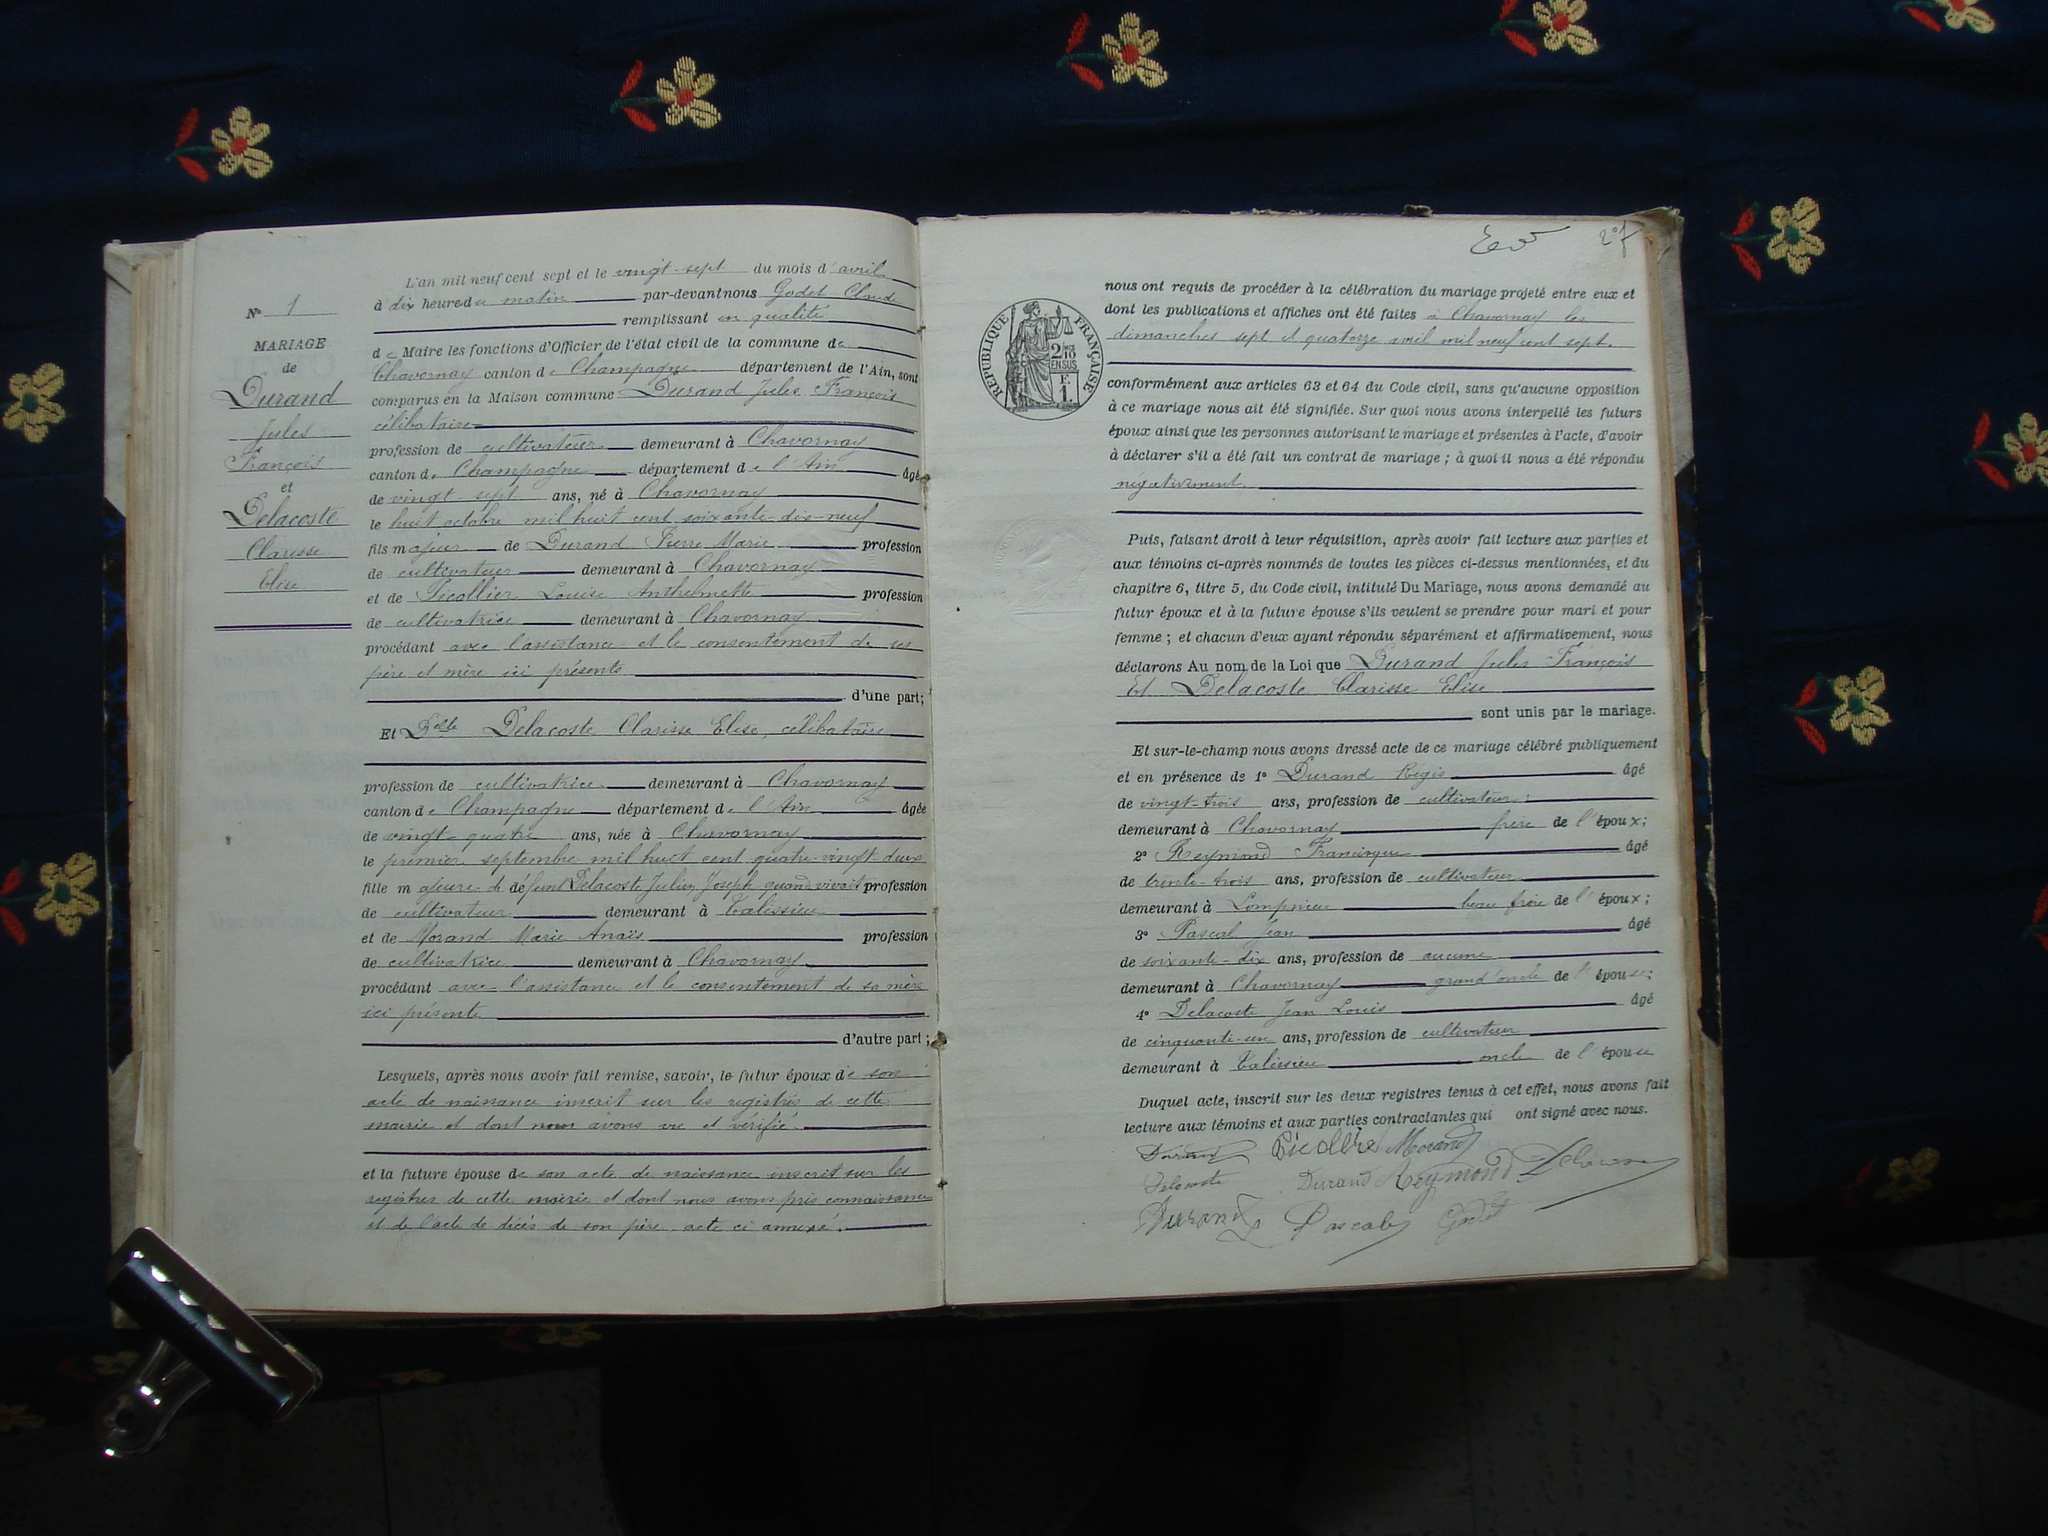 L'an mil neuf cent sept et le vingt-sept du mois d'avril
Nº 1
à dix heures du matin par-devant nous Godet Claude
remplissant en qualité
MARIAGE
de
Durand
Jules
François
et
Delacoste
Clarisse
Elise
de Maire les fonctions d'Officier de l'état civil de la commune de
Chavornay canton de Champagne département de l'Ain, sont
comparus en la Maison commune Durand Jules François
célibataire
profession de cultivateur demeurant à Chavornay
canton de Champagne département de l'Ain âgé
de vingt sept ans, né à Chavornay
le huit octobre mil huit cent soixante-dix-neuf
fils majeur de Durand Pierre Marie profession
de cultivateur demeurant à Chavornay
et de Picollier Louise Anthelmette profession
de cultivatrice demeurant à Chavornay
procédant avec l'assistance et le consentement de ses
père et mère ici présents
d'une part;
Et Delle Delacoste Clarisse Elise, célibataire
profession de cultivatrice demeurant à Chavornay
canton de Champagne département de l'Ain âgée
de vingt-quatre ans, née à Chavornay
le premier septembre mil huit cent quatre-vingt-deux
fille majeure de défunt Delacoste Julien Joseph quand vivait profession
de cultivateur demeurant à Talissieu
et de Morand Marie Anaïs profession
de cultivatrice demeurant à Chavornay
procédant avec l'assistance et le consentement de sa mère
ici présente
d'autre part;
Lesquels, après nous avoir fait remise, savoir, le futur époux de son
acte de naissance inscrit sur les registres de cette
mairie et dont nous avons vu et vérifié.
et la future épouse de son acte de naissance inscrit sur les
registres de cette mairie et dont nous avons pris connaissance
et de l'acte de décès de son père acte ci annexé.
RÉPUBLIQUE FRANÇAISE
2/10
EN SUS
F.
1.
nous ont requis de procéder à la célébration du mariage projeté entre eux et
dont les publications et affiches ont été faites à Chavornay les
dimanches sept et quatorze avril mil neuf cent sept.
conformément aux articles 63 et 64 du Code civil, sans qu'aucune opposition
à ce mariage nous ait été signifiée. Sur quoi nous avons interpellé les futurs
époux ainsi que les personnes autorisant le mariage et présentes à l'acte, d'avoir
à déclarer s'il a été fait un contrat de mariage; à quoi il nous a été répondu
négativement
Puis, faisant droit à leur réquisition, après avoir fait lecture aux parties et
aux témoins ci-après nommés de toutes les pièces ci-dessus mentionnées, et du
chapitre 6, titre 5, du Code civil, intitulé Du Mariage, nous avons demandé au
futur époux et à la future épouse s'ils veulent se prendre pour mari et pour
femme; et chacun d'eux ayant répondu séparément et affirmativement, nous
déclarons Au nom de la Loi que Durand Jules François
Et Delacoste Clarisse Elise
sont unis par le mariage.
Et sur-le-champ nous avons dressé acte de ce mariage célébré publiquement
et en présence de 1º Durand Régis âgé
de vingt-trois ans, profession de cultivateur
demeurant à Chavornay frère de l'époux;
2º Reymond Francisque âgé
de trente-trois ans, profession de cultivateur
demeurant à Lompnieu beau frère de l'époux;
3º Pascal Jean âgé
de soixante-dix ans, profession de aucune
demeurant à Chavornay grand'oncle de l'épouse;
4º Delacoste Jean Louis âgé
de cinquante-un ans, profession de cultivateur
demeurant à Talissieu oncle de l'épouse
Duquel acte, inscrit sur les deux registres tenus à cet effet, nous avons fait
lecture aux témoins et aux parties contractantes qui ont signé avec nous.
Durand Picollier Morand
Delacoste Durand Reymond Delacoste
Durand Pascal Godet